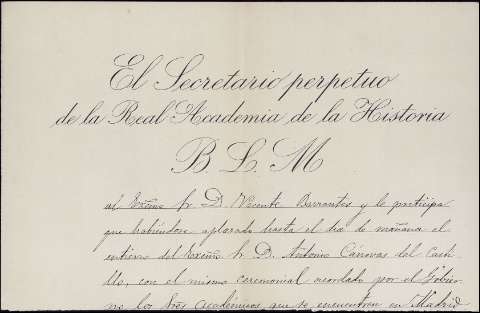 El Secretario perpetuo
de la Real Academia de la Historia
B. L. M
al Exĉmo Sr D. Vicente Barrantes y le participa
que habiéndose aplazado hasta el día de mañana el
entierro del Excmo Sr. D. Antonio Cánovas del Casti-
llo, con el mismo ceremonial acordado por el Gobier-
no los Sres Académicos que se encuentren en Madrid